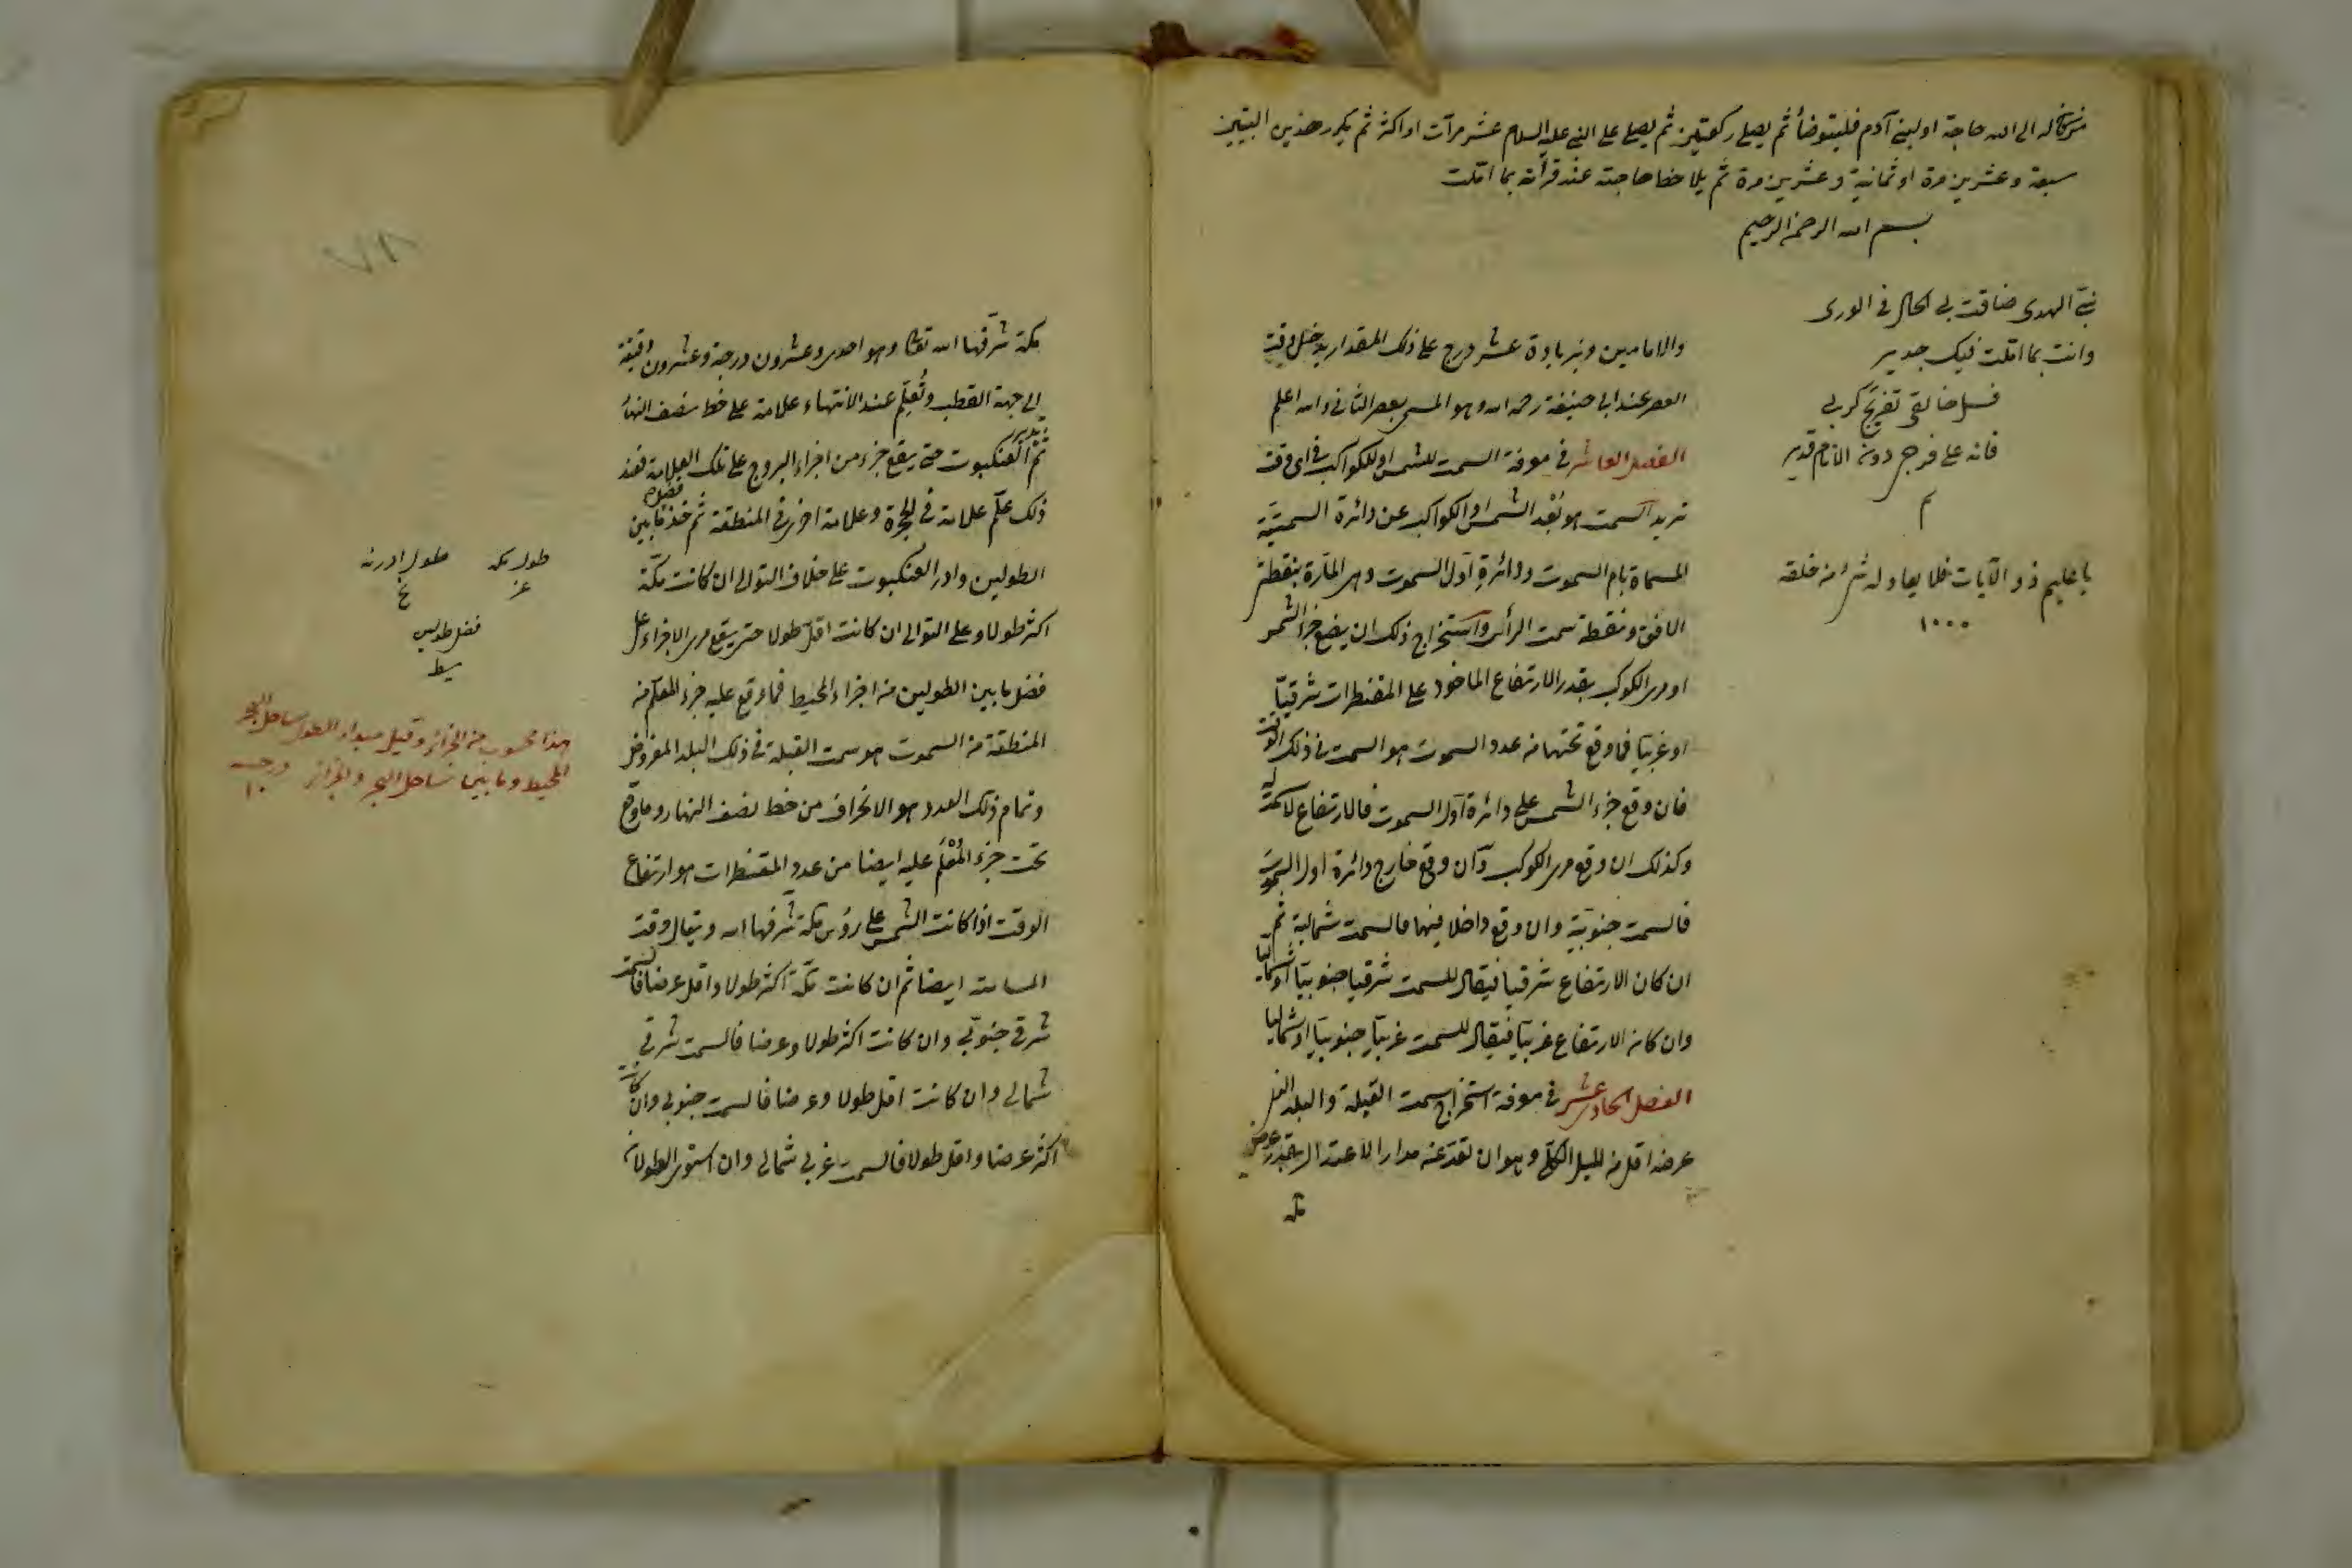 من كان له الى الله حاجة او لبني آدم فليتوضأ ثم يصلي ركعتين ثم يصلي على النبي عليه السلام عشر مرآت او اكثر ثم يكرر هذين البيتين
سبعة وعشرين مرة او ثمانية وعشرين مرة ثم يلاحظ حاجته عند قرأته بما املت
بسم الله الرحمن الرحيم
نبيّ الهدى ضاقت بي الحال في الورى
وانت بما املت فيك جدير
فسل خالقى تفريج كربي
فانه على فرج دون الانام قدير
م
يا عليم ذو الآيات فلا يعادله شئ من خلقه
١٠٠٠
والامامين وبزيادة عشر درج على ذلك المقدار يدخل وقت
العصر عند ابى حنيفة رحمه الله وهو المسمى بعصر الثانى والله اعلم
الفصل العاشر فى معرفة السمت للشمس او للكواكب فى اى وقت
تريد السمت هو بُعْد الشمس او الكواكب عن دائرة السمتيّة
المسماة بام السموت ودائرةِ اَول السموت وهى المآرة بنقطتى
الافق ونقطة سمت الرأس واستخراج ذلك ان يضع جزء الشمس
او مرى الكوكب بقدر الارتفاع الماخوذ على المقنطرات شرقيّا
او غربيّا فما وقع تحتها من عدد السموت هو السمت فى ذلك الوقت
فان وقع جزء الشمس على دائرة اَول السموت فالارتفاع لا سمت له
وكذلك ان وقع مرى الكوكب وان وقع خارج دائرة اول السموت
فالسمت جنوبيّة وان وقع داخلا فيها فالسمت شمالية ثم
ان كان الارتفاع شرقيا فيقال للسمت شرقيا جنوبيّا او شماليا
وان كان الارتفاع غربيّا فيقال للسمت غربيّا جنوبيّا او شماليا
الفصل الحادى عشر فى معرفة استخراج سمت القبلة والبلد الذى
عرضه اقل من الميل الكلّى وهو ان تعد عن مدار الاعتدال بقدر عرض
مكة
مكة شرّفها الله تعالى وهو احدى وعشرون درجة وعشرون دقيقة
الى جهة القطب وتُعلّم عند الانتهاء علامة على خط نصف النهار
ثم تدير العنكبوت حتى يقع جزء من اجزاء البروج على تلك العلامة فعند
ذلك علّم علامة فى الحجرة وعلامة اخرى فى المنطقة ثم خذ فضل ما بين
الطولين وادر العنكبوت على خلاف التوالى ان كانت مكّة
اكثر طولا وعلى التوالى ان كانت اقلّ طولا حتى يقع مرى الاجزاء على
فضل ما بين الطولين من اجزاء المحيط فما وقع عليه جزء المعلّم من
المنطقة من السموت هو سمت القبلة فى ذلك البلد المفروض
وتمام ذلك العدد هو الانحراف من خط نصف النهار وما وقع
تحت جزء المُعْلَم عليه ايضا من عدد المقنطرات هو ارتفاع
الوقت اذا كانت الشمس على رؤس مكة شرفها الله ويقال وقت
المسامتة ايضا ثم ان كانت مكّة اكثر طولا واقل عرضا فالسمت
شرقى جنوبّي وان كانت اكثر طولا وعرضا فالسمت شرقى
شمالى وان كانت اقل طولا وعرضا فالسمت جنوبى وان كانت
اكثر عرضا واقل طولا فالسمت غربى شمالى وان استوى الطولان
طول مكه طول ادرنه
عز نح
فضل طولين
يط
هذا محسوب من الجزائر وقيل مبداء الطول ساحل البحر
المحيط وما بين ساحل البحر والجزائر درجه
١٠